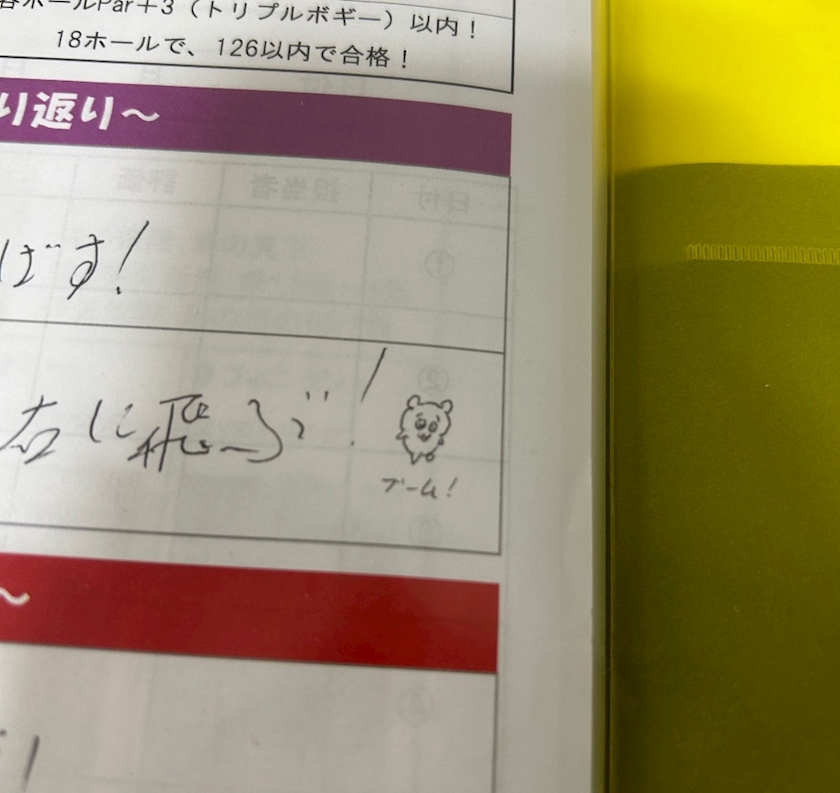 各ホールPar＋3（トリプルボギー）以内！
18ホールで、126以内で合格！
り返り～
ばす！
右に飛ぶ！
ブーム！
～